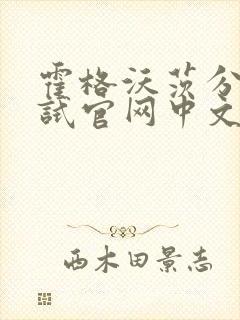 霍格沃茨分
试官网中文
西木田景志